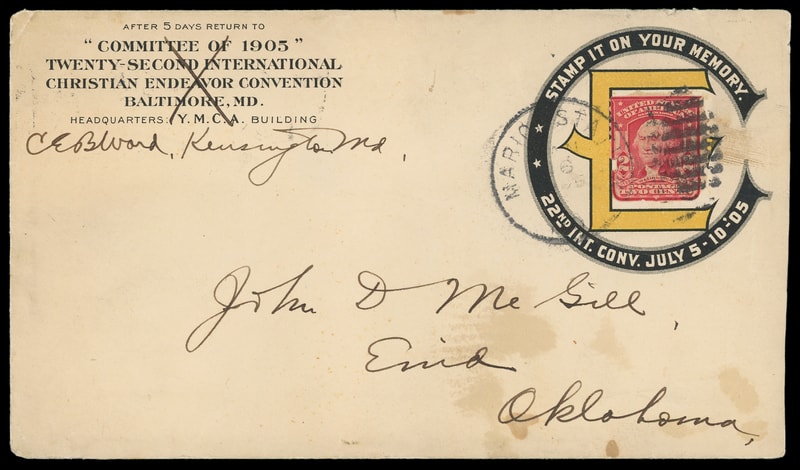 AFTER 5 DAYS RETURN TO
"COMMITTEE OF 1905"
TWENTY-SECOND INTERNATIONAL
CHRISTIAN ENDEAVOR CONVENTION
BALTIMORE, MD.
HEADQUARTERS: Y.M.C.A. BUILDING
C E B Ward, Kensington Md,
STAMP IT ON YOUR MEMORY.
CE
UNITED STATES
OF AMERICA
2
TWO CENTS
MARIO STA
22ND INT. CONV. JULY 5-10-'05
John D Mc Gill,
Enid
Oklahoma,